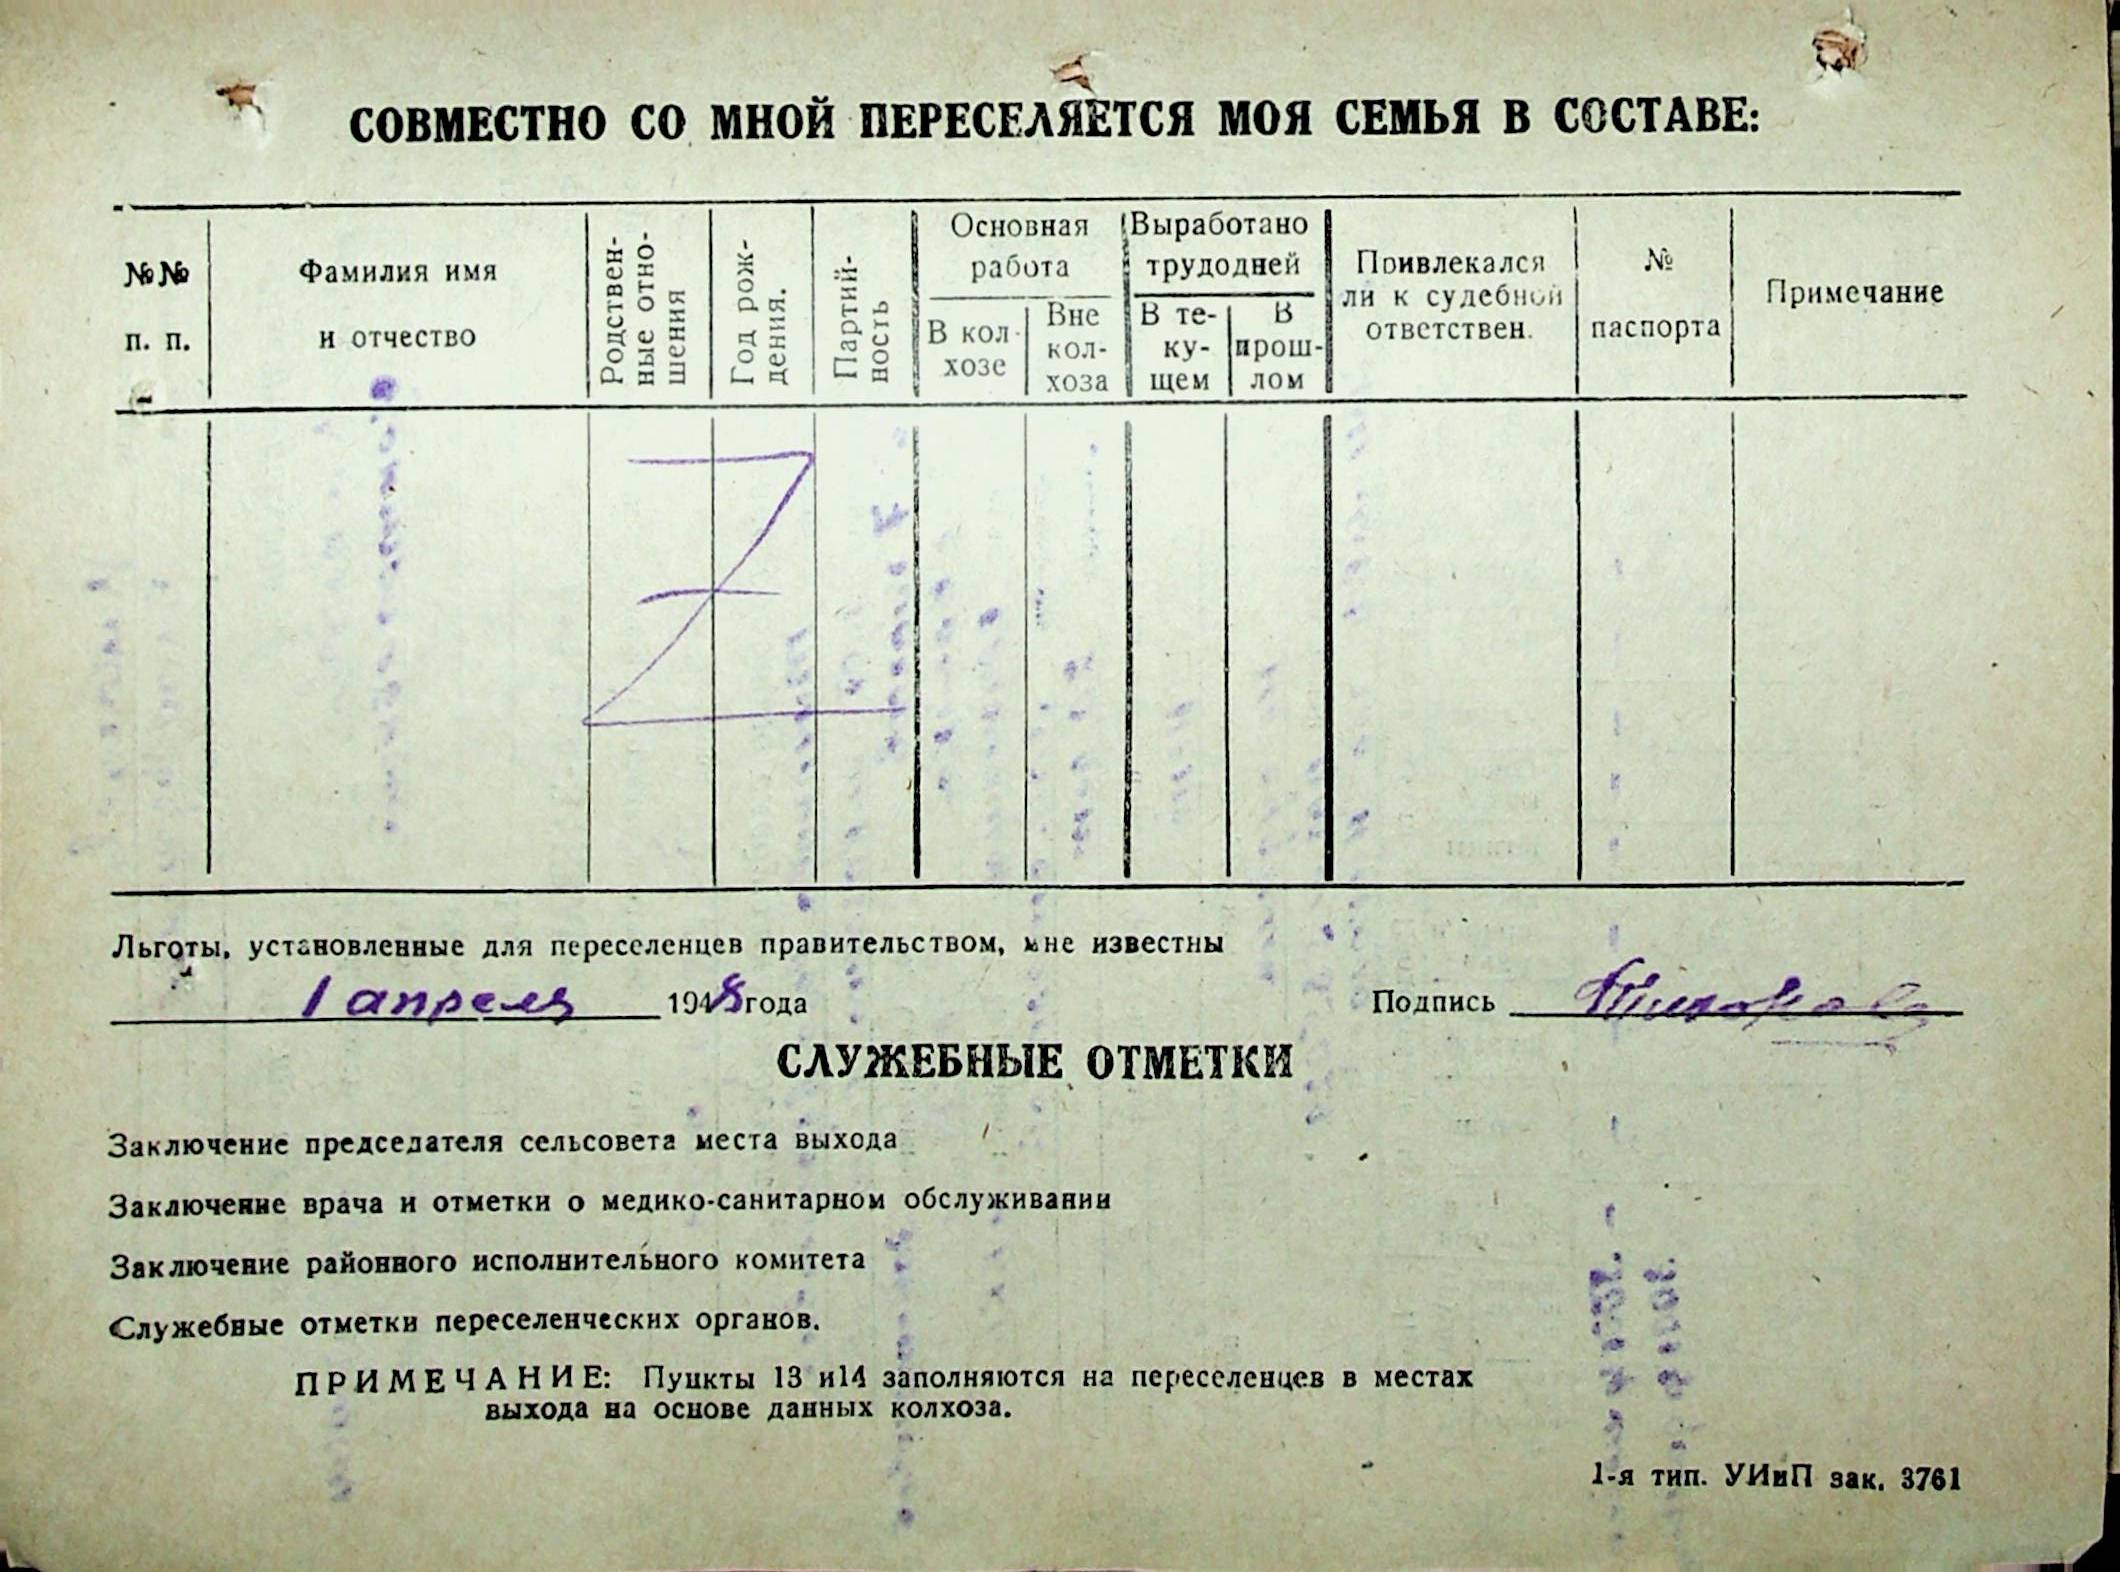 СОВМЕСТНО СО МНОЙ ПЕРЕСЕЛЯЕТСЯ МОЯ СЕМЬЯ В СОСТАВЕ:
№№ п. п.
Фамилия имя и отчество
Родствен-
ные отно-
шения
Год рож-
дения.
Партий-
ность
Основная работа
В кол-
хозе
Вне
кол-
хоза
Выработано трудодней
В те-
ку-
щем
В
прош-
лом
Привлекался
ли к судебной
ответствен.
№
паспорта
Примечание
Льготы, установленные для переселенцев правительством, мне известны
1 апреля 1948 года
Подпись
СЛУЖЕБНЫЕ ОТМЕТКИ
Заключение председателя сельсовета места выхода
Заключение врача и отметки о медико-санитарном обслуживании
Заключение районного исполнительного комитета
Служебные отметки переселенческих органов.
ПРИМЕЧАНИЕ: Пункты 13 и14 заполняются на переселенцев в местах
выхода на основе данных колхоза.
1-я тип. УИиП зак. 3761